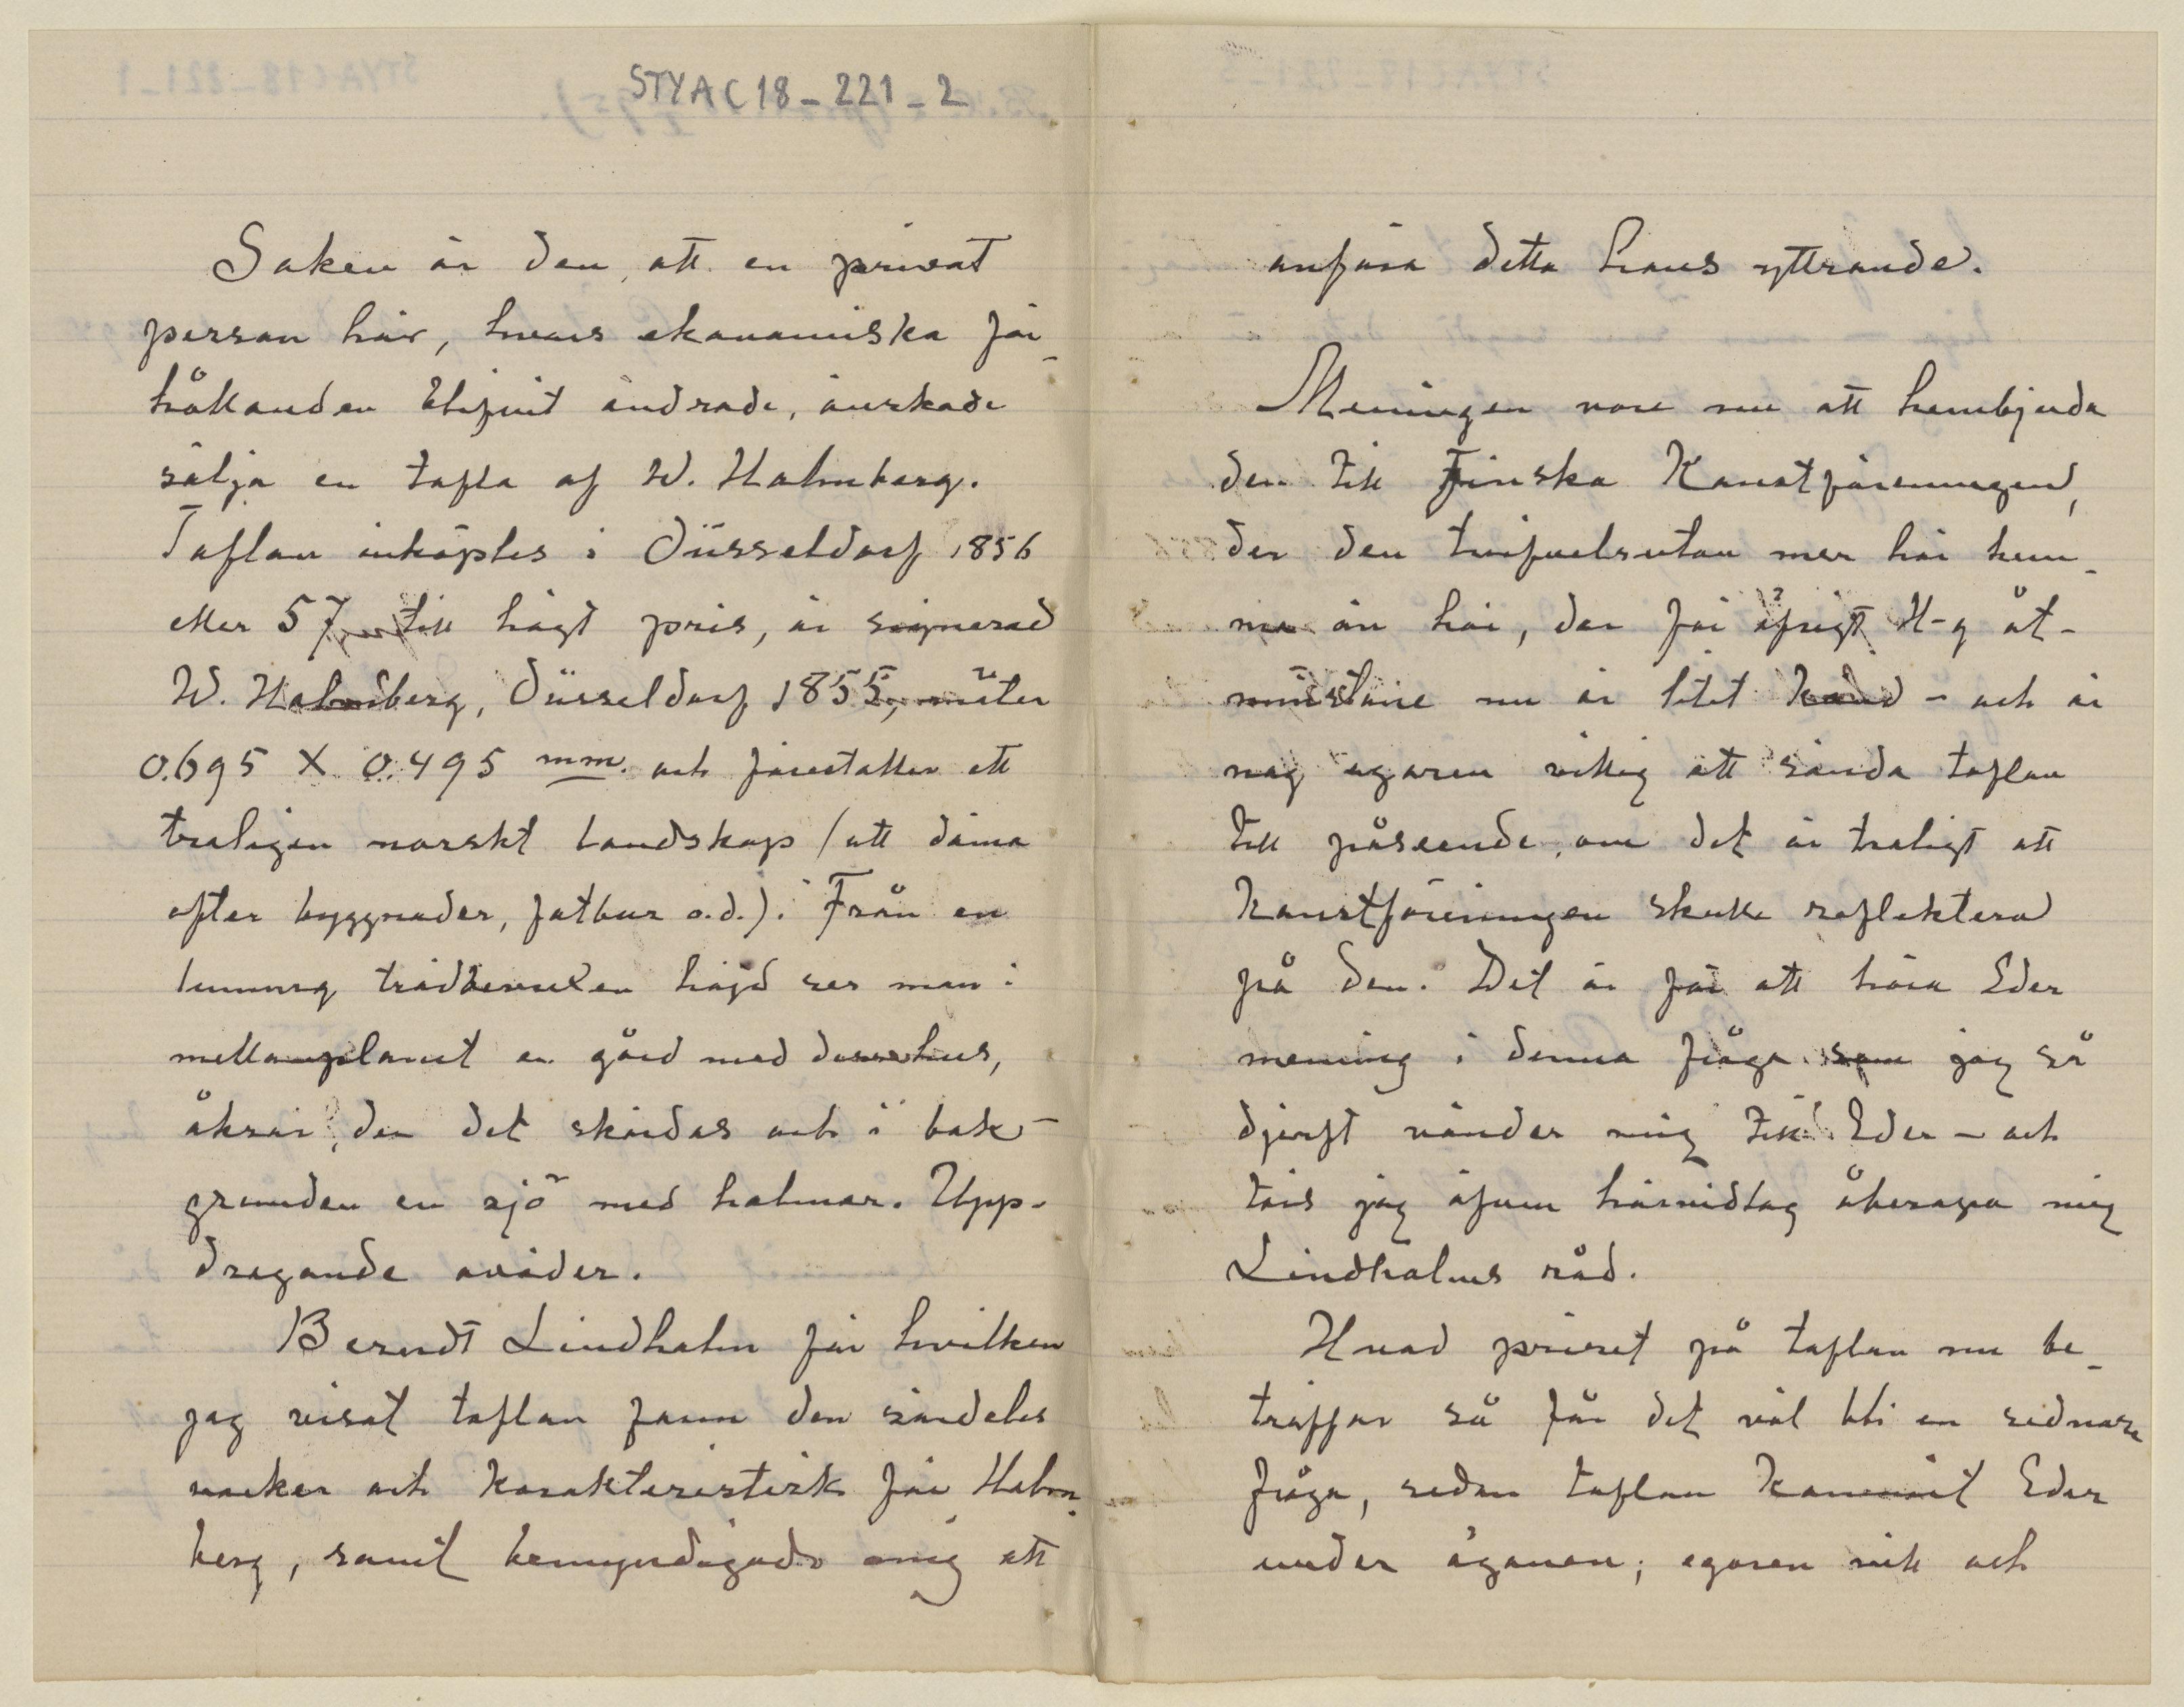 STYA C18_221_2
Saken är den, att en privat
person här, hvars ekonomiska för-
hållanden blifvit ändrade, önskade
sälja en tafla af W. Holmberg.
Taflan inköptes i Düsseldorf 1856
eller 57 till högt pris, är signerad
W. Holmberg, Düsseldorf 1855, mäter
0.695 X 0.495 mm. och föreställer ett
troligen norskt landskap (att döma
efter byggnader, fatbur o.d.). Från en
lummig trädbevuxen höjd ser man i
mellanplanet en gård med
åkrar, der det skördas och i bak-
grunden en sjö med holmar. Upp-
dragande oväder.
Berndt Lindholm för hvilken
jag visat taflan fann den särdeles
vacker och karakteristisk för Holm-
berg, samt bemyndigade mig att
anföra detta hans yttrande.
Meningen vore nu att hembjuda
den till Finska Konstföreningen,
der den tvifvelsutan mer hör hem-
ma än här, der för öfrigt H-g åt-
minstone nu är litet känd - och är
nog egaren villig att sända taflan
till påseende, om det är troligt att
Konstföreningen skulle reflektera
på den. Det är för att höra Eder
mening i denna fråga som jag så
djerft vänder mig till Eder - och
törs jag äfven härvidlag åberopa mig
Lindholms råd.
Hvad priset på taflan nu be-
träffar så får det väl bli en sednare
fråga, sedan taflan kommit Eder
under ögonen; egaren vill och